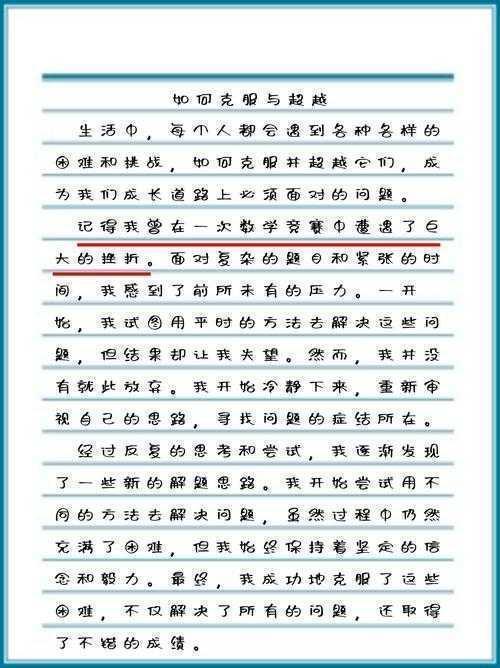 如何克服与超越
生活中，每个人都会遇到各种各样的
困难和挑战，如何克服并超越它们，成
为我们成长道路上必须面对的问题。
记得我曾在一次数学竞赛中遭遇了巨
大的挫折。面对复杂的题目和紧张的时
间，我感到了前所未有的压力。一开
始，我试图用平时的方法去解决这些问
题，但结果却让我失望。然而，我并没
有就此放弃。我开始冷静下来，重新审
视自己的思路，寻找问题的症结所在。
经过反复的思考和尝试，我逐渐发现
了一些新的解题思路。我开始尝试用不
同的方法去解决问题，虽然过程中仍然
充满了困难，但我始终保持着坚定的信
念和毅力。最终，我成功地克服了这些
困难，不仅解决了所有的问题，还取得
了不错的成绩。